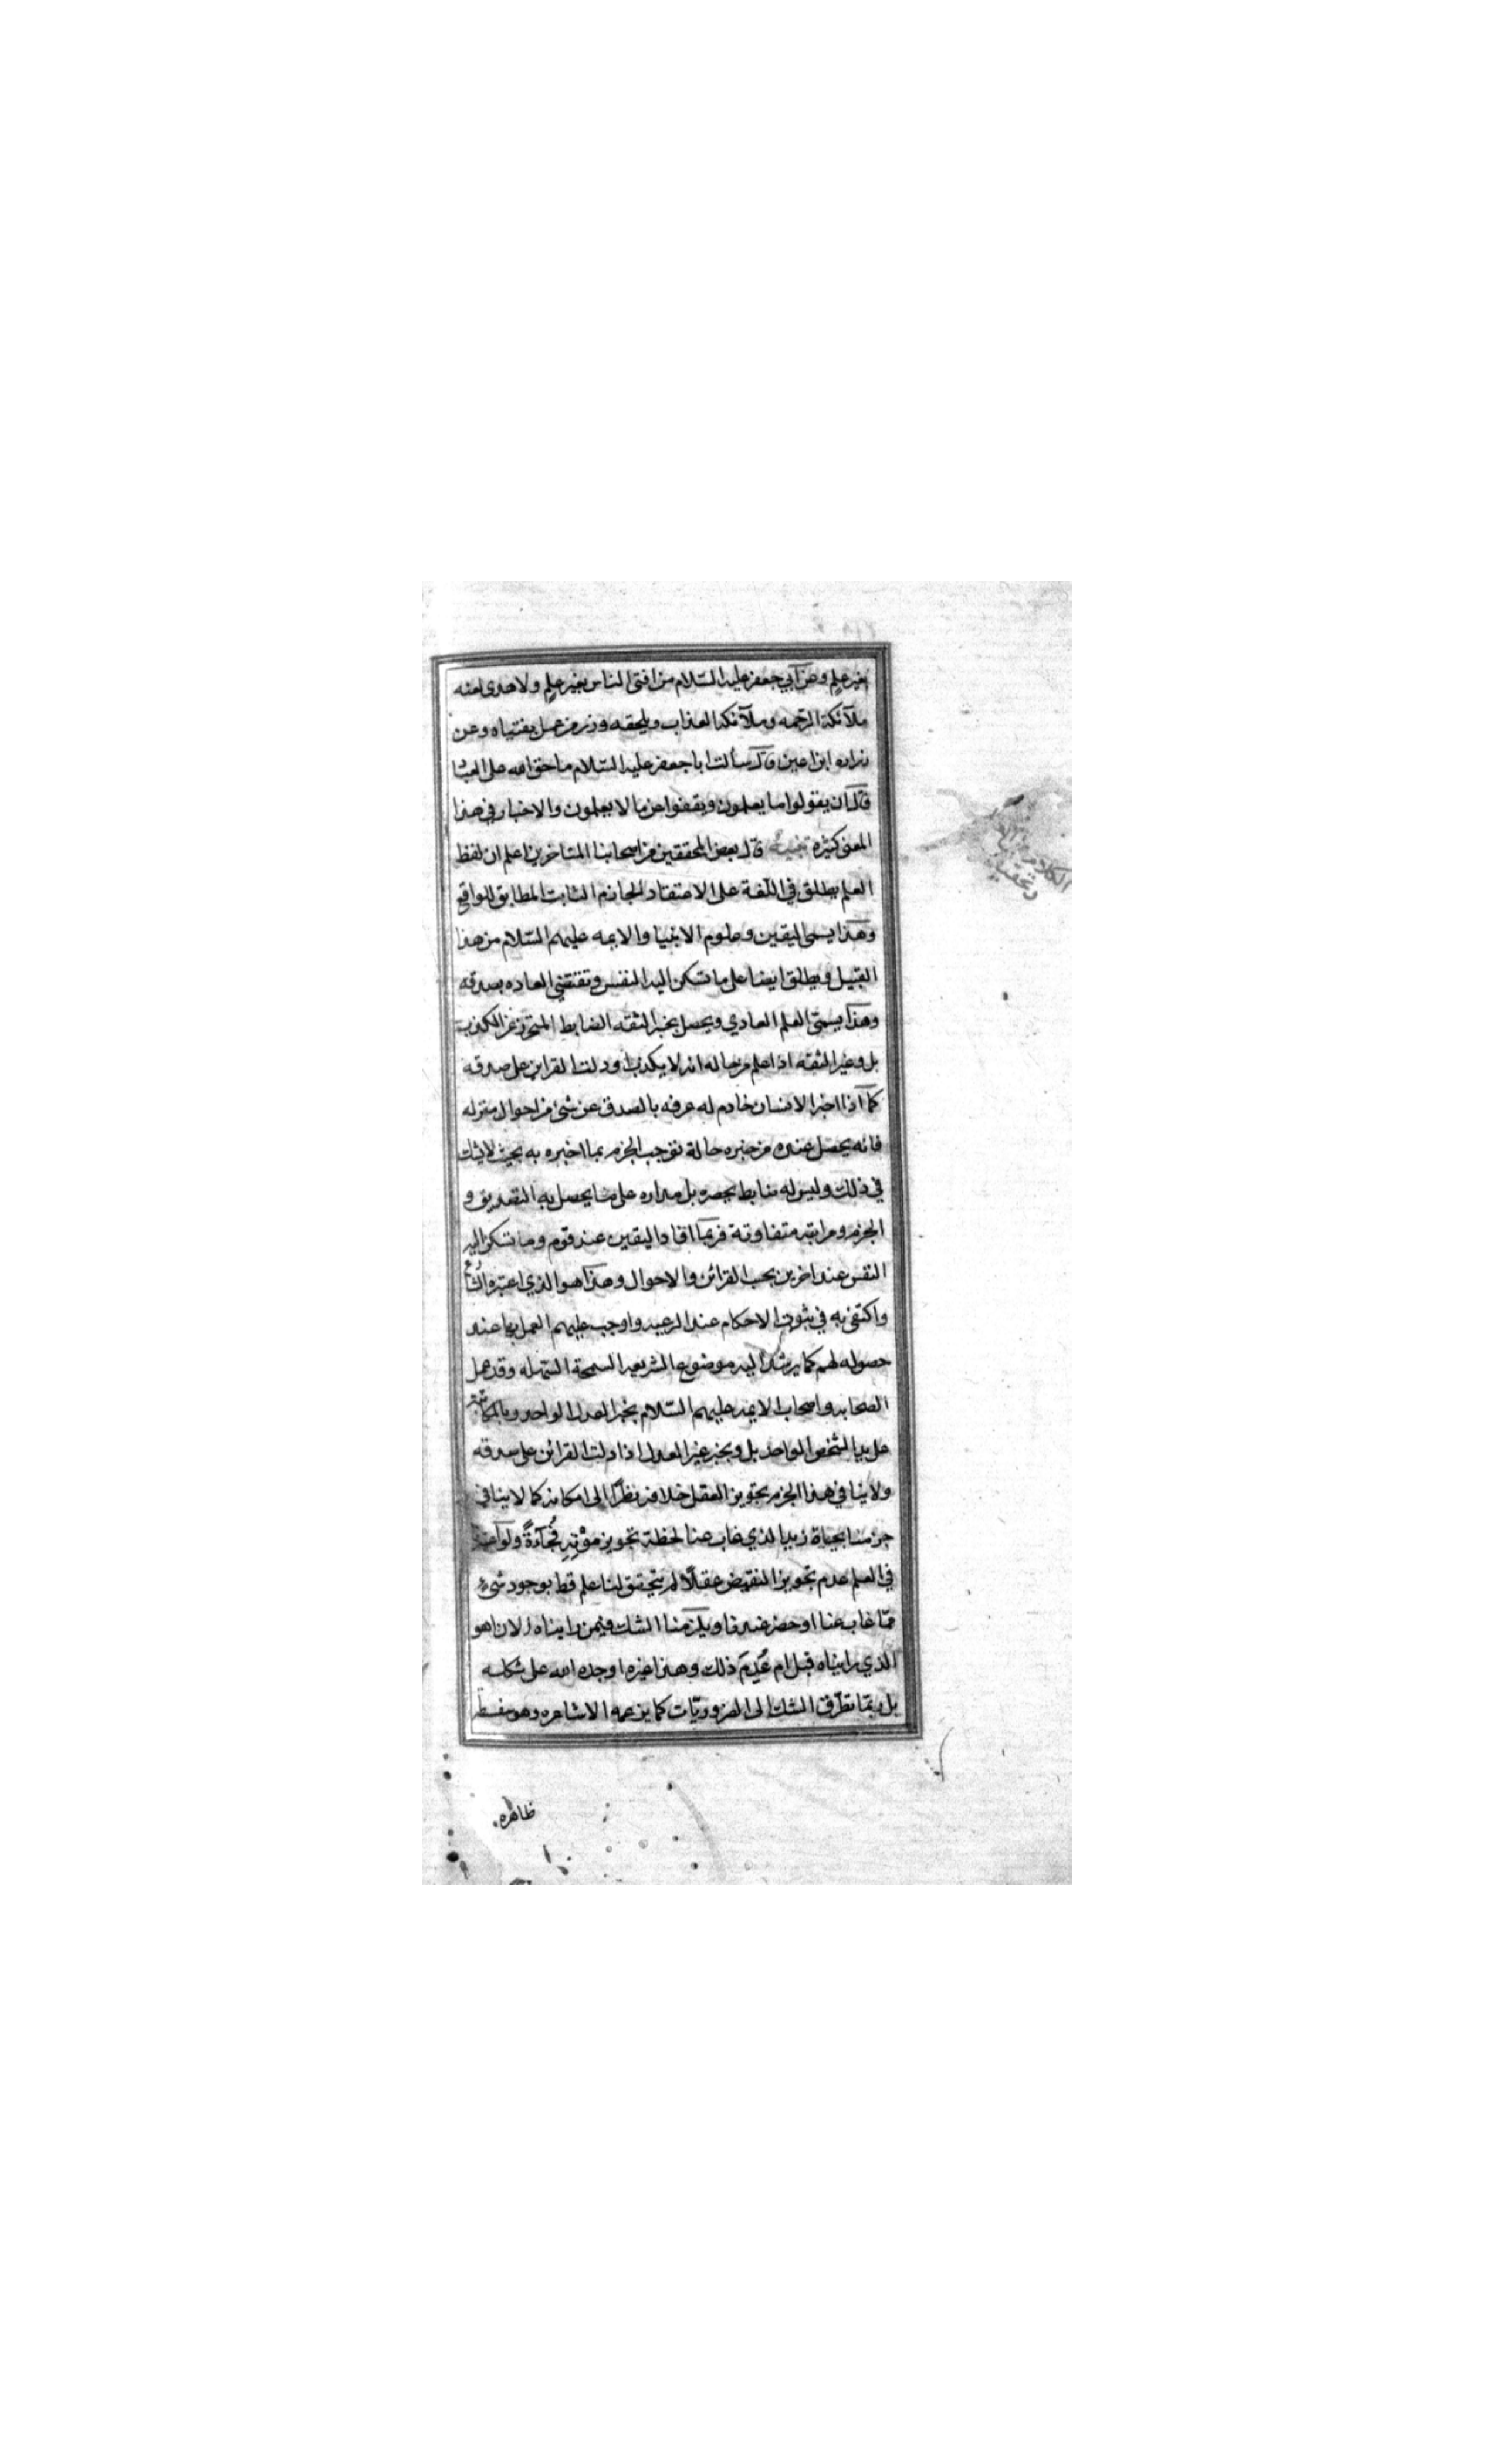 بغير علم وعن أبي جعفر عليه السّلام من افتى الناس بغير علم ولا هدى لعنه
ملآئكة الرّحمه وملآئكة العذاب ويلحقه وزر من عمل بفتياه وعن
زراره ابن اعين قال سألت ابا جعفر عليه السّلام ما حق الله على العباد
قال ان يقولوا ما يعلمون ويقفوا عن ما لا يعلمون والاخبار في هذا
المعنى كثيره قال بعض المحققين من اصحابنا المتاخرين اعلم ان لفظ
العلم يطلق في اللّغة على الاعتقاد الجازم الثابت المطابق للواقع
وهذا يسمى اليقين وعلوم الانبيا والايمه عليهم السّلام من هذا
القبيل ويطلق ايضا على ما تسكن اليه النفس وتقتضي العاده بصدقه
وهذا يسمّى العلم العادي ويحصل بخبر الثقه الضابط المتحرز عن الكذب
بل وغير الثقه اذا علم من حاله انه لا يكذب او دلت القراين على صدقه
كما اذا اخبر الانسان خادم له عرفه بالصدق عن شئ من احوال منزله
فانه يحصل عنده من خبره حالة توجب الجزم بما اخبره به بحيث لا يشك
في ذلك وليس له ضابط يحصره بل مداره على ما يحصل به التصديق و
الجزم ومراتبه متفاوتة فربّما افاد اليقين عند قوم وما تسكن اليه
النفس عند اخرين بحسب القرائن والاحوال وهذا هو الذي اعتبره الشارع
واكتفى به في ثبوت الاحكام عند الرعيه واوجب عليهم العمل بها عند
حصوله لهم كما يرشد اليه موضوع الشريعه السمحة السّهله وقد عمل
الصحابه واصحاب الايمه عليهم السّلام بخبر العدل الواحد وبالمكاتبة
على يد الشخص الواحد بل وبخبر غير العدل اذا دلت القرائن على صدقه
ولا ينافي هذا الجزم تجويز العقل خلافه نظرًا الى امكانه كما لا ينافي
جزمنا بحياة زيد الذي غاب عنا لحظة تجويز موْتِهِ فُجآءةً ولو اعتبر
في العلم عدم تجويز النقيض عقلًا لم يتحقق لنا علم قط بوجود شئ
ممّا غاب عنا او حضر عندنا ويلزمنا الشك فيمن رايناه الان اهو
الذي رايناه قبل ام عُدِمَ ذلك وهذا غيره اوجده الله على شكله
بل ربمّا تطرّق الشك الى الضروريّات كما يزعمه الاشاعره وهو سفسطة
ظاهره